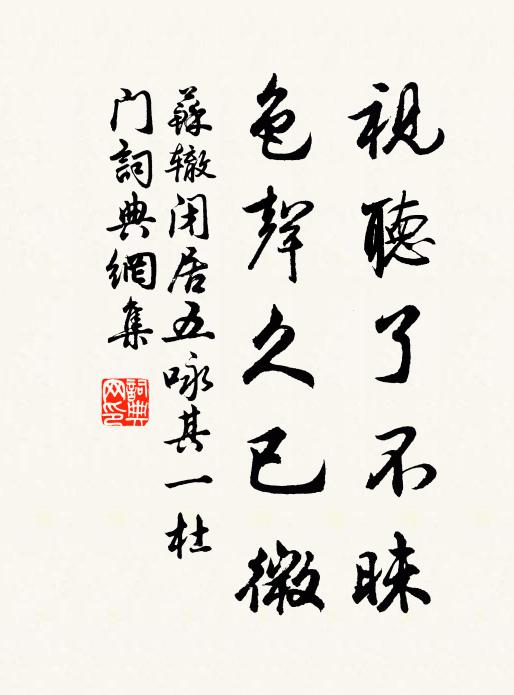 視聽了不昧
色聲久已微
蘇辙闭居五咏其一杜
门詞典網集
詞典网印